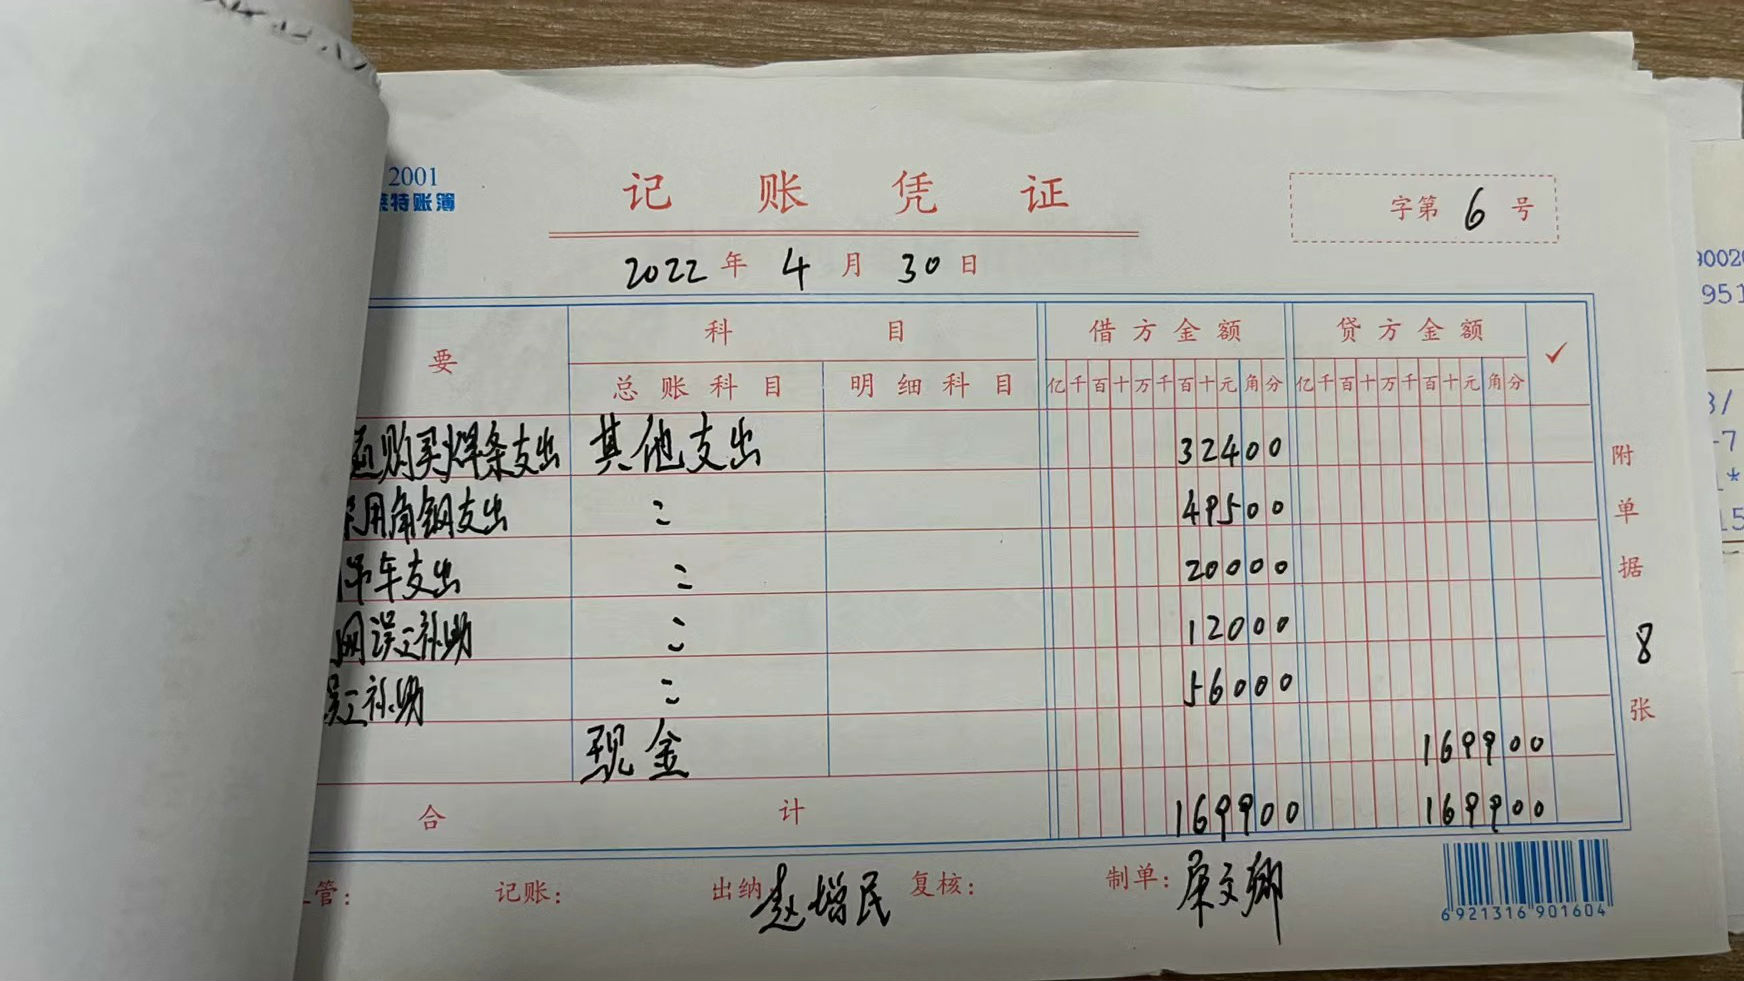 2001
特账簿
记 账 凭 证
字第 6 号
2022 年 4 月 30 日
要 科 目 借方金额 贷方金额 ✓
总账科目 明细科目 亿千百十万千百十元角分 亿千百十万千百十元角分
购买焊条支出 其他支出 32400
用角钢支出 〃 49500
吊车支出 〃 20000
网误工补助 〃 12000
误工补助 〃 56000
现金 169900
合 计 169900 169900
附单据 8 张
管: 记账: 出纳 赵增民 复核: 制单:
6 921316 901604
9002
951
3/
-7
1*
15